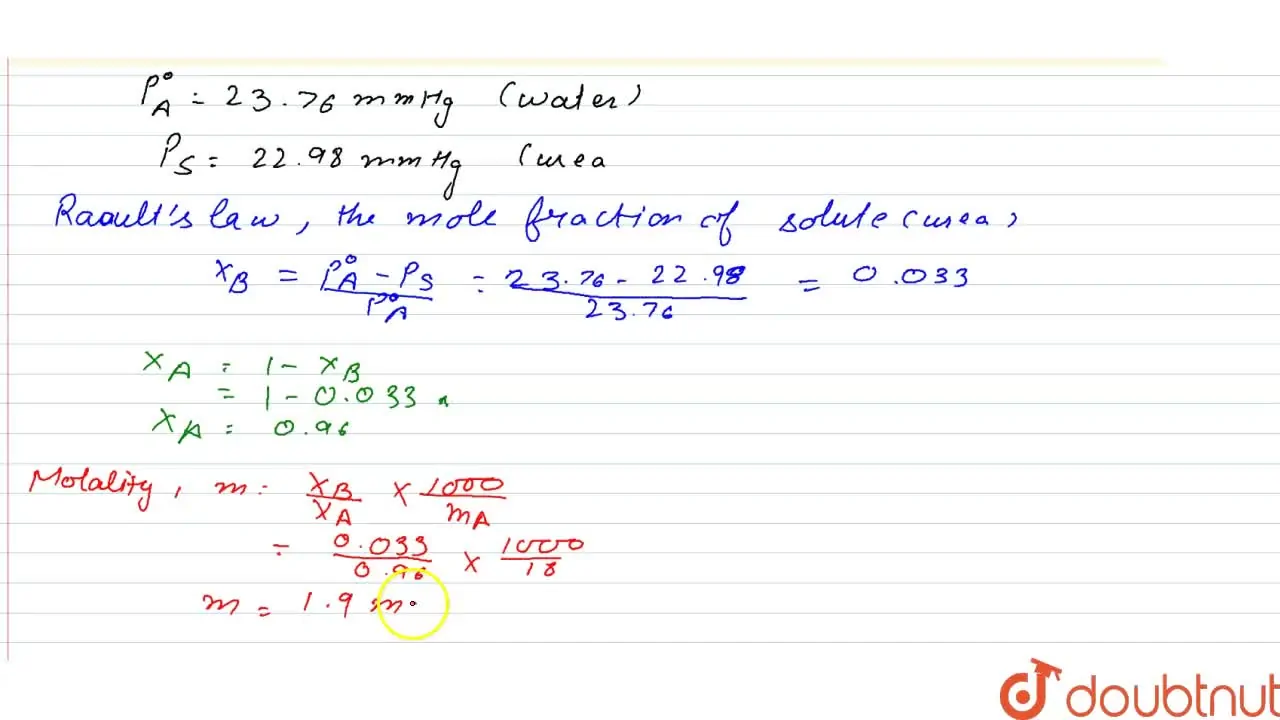 P°A = 23.76 mmHg (water)
PS = 22.98 mmHg (urea
Raoult's law, the mole fraction of solute (urea)
xB = P°A - PS / P°A = 23.76 - 22.98 / 23.76 = 0.033
xA = 1 - xB
= 1 - 0.033
xA = 0.96
Molality, m = xB / xA × 1000 / mA
= 0.033 / 0.96 × 1000 / 18
m = 1.9 m
doubtnut